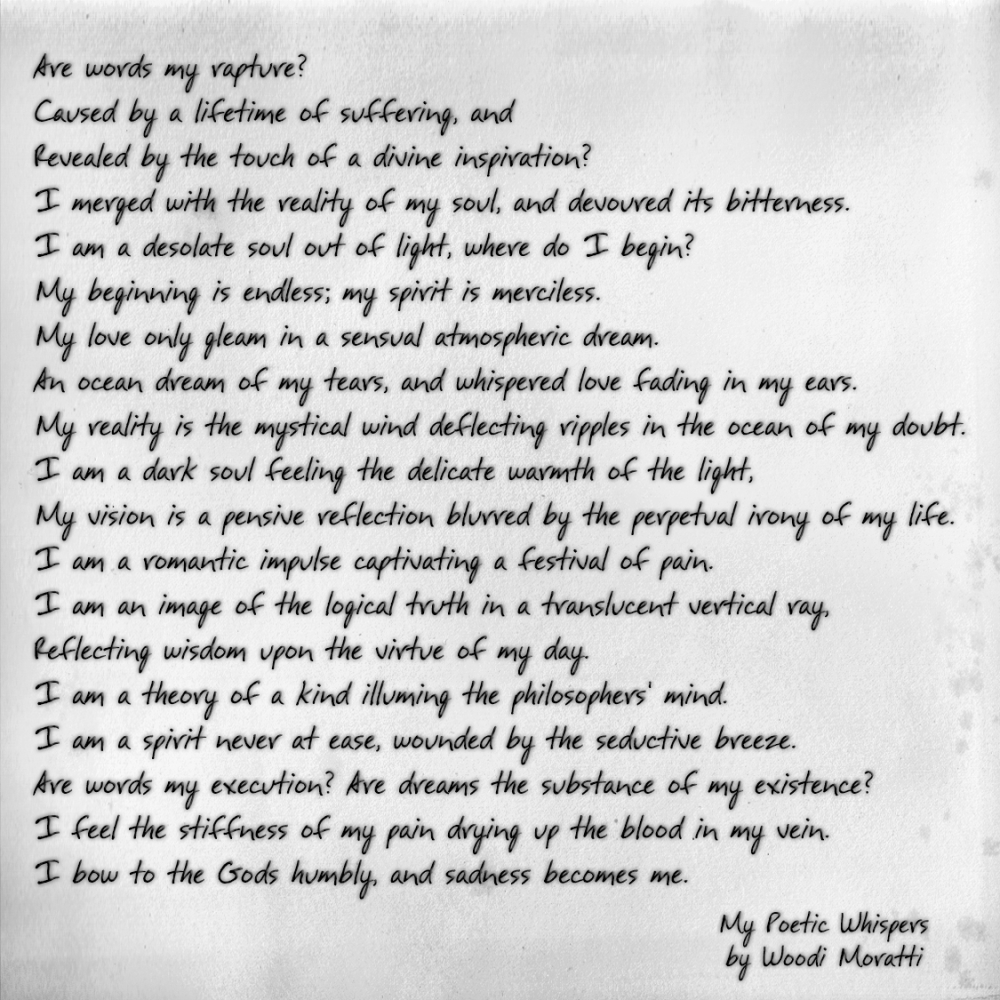 Are words my rapture?
Caused by a lifetime of suffering, and
Revealed by the touch of a divine inspiration?
I merged with the reality of my soul, and devoured its bitterness.
I am a desolate soul out of light, where do I begin?
My beginning is endless; my spirit is merciless.
My love only gleam in a sensual atmospheric dream.
An ocean dream of my tears, and whispered love fading in my ears.
My reality is the mystical wind deflecting ripples in the ocean of my doubt.
I am a dark soul feeling the delicate warmth of the light,
My vision is a pensive reflection blurred by the perpetual irony of my life.
I am a romantic impulse captivating a festival of pain.
I am an image of the logical truth in a translucent vertical ray,
Reflecting wisdom upon the virtue of my day.
I am a theory of a kind illuming the philosophers' mind.
I am a spirit never at ease, wounded by the seductive breeze.
Are words my execution? Are dreams the substance of my existence?
I feel the stiffness of my pain drying up the blood in my vein.
I bow to the Gods humbly, and sadness becomes me.
My Poetic Whispers
by Woodi Moratti